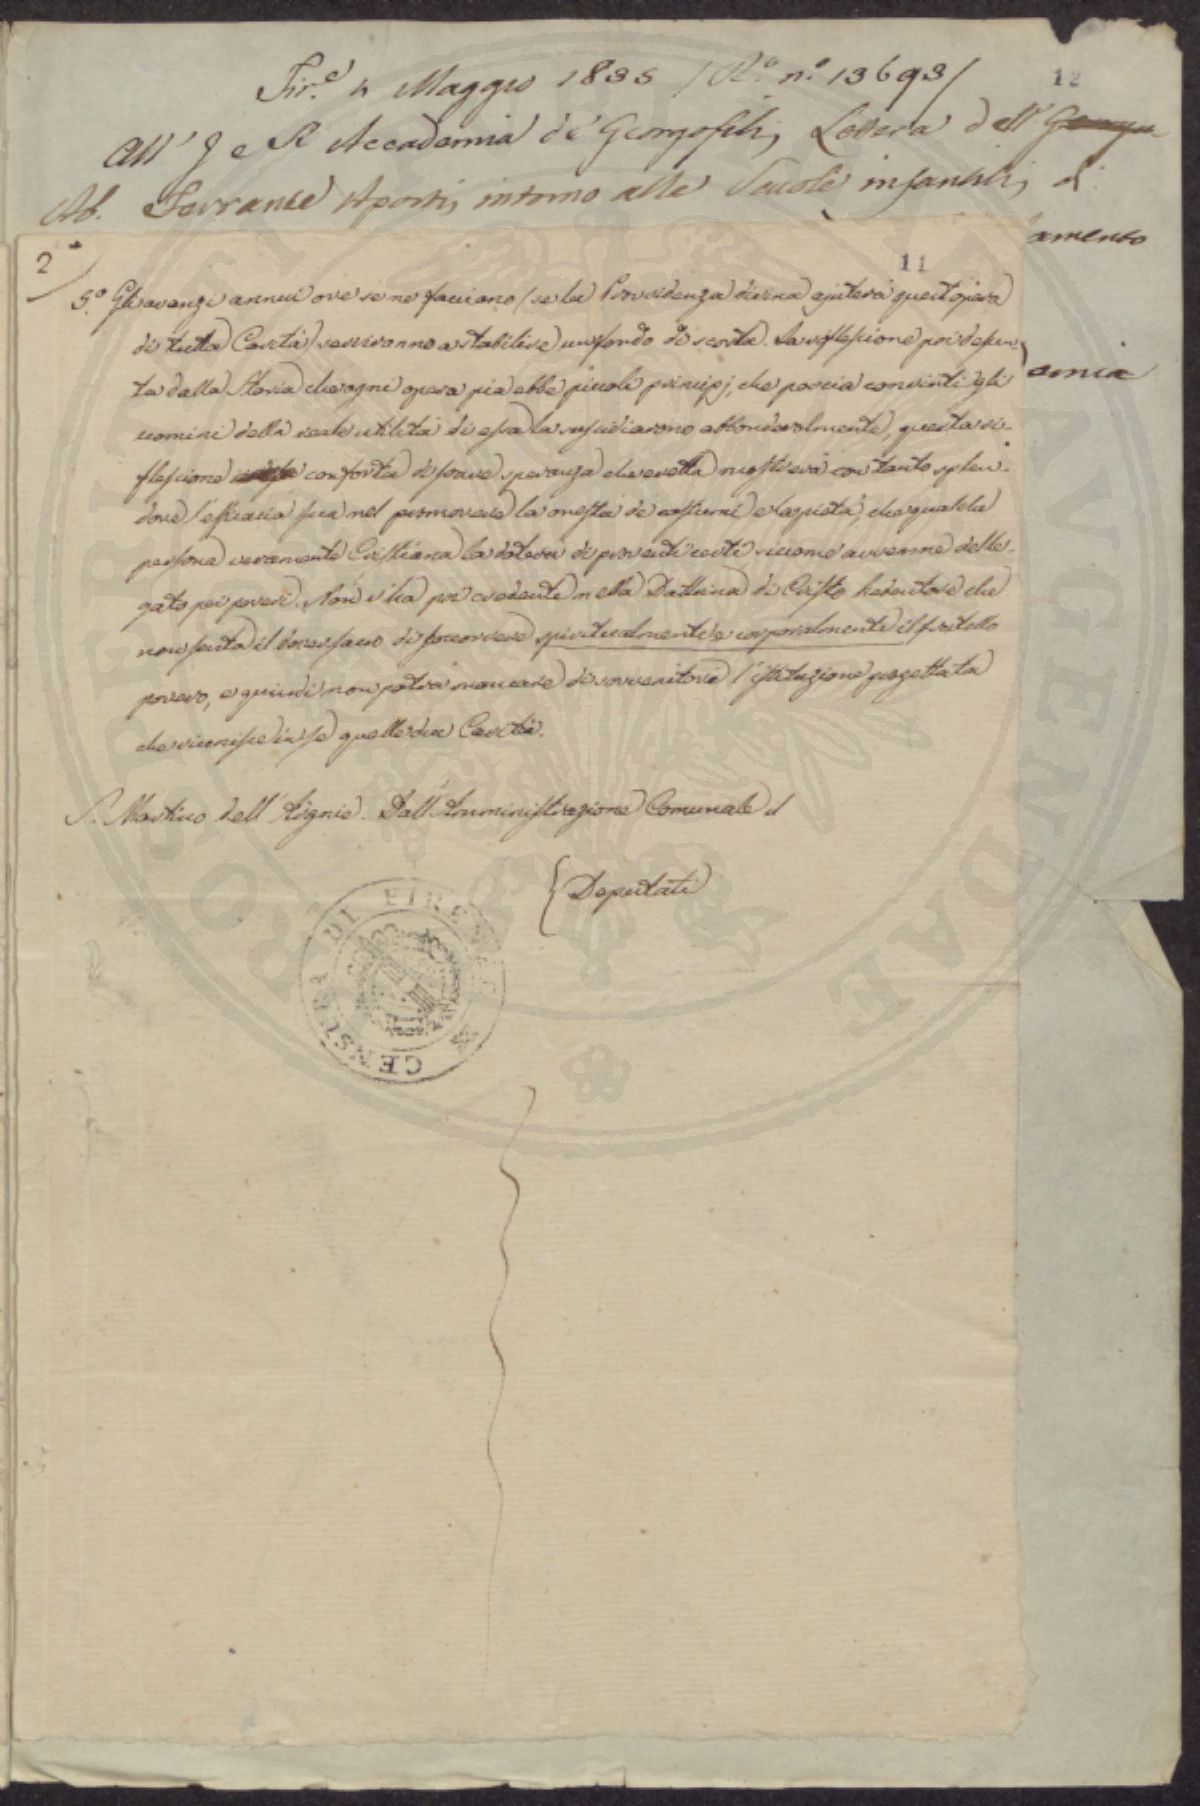 12
Fir.e 4 Maggio 1835 / R.o n.o 13693 /
All' I e R Accademia de' Georgofili, Lettera dell'
Ab. Ferrante Aporti, intorno alle Scuole infantili, di
amento
omia
2
11
5.o Gli avanzi annui ove se ne facciano (se la Provvidenza divina ajuterà quest'opera
di tutta Carità) serviranno a stabilire un fondo di scorta. La riflessione poi desun-
ta dalla Storia che ogni opera pia ebbe piccoli principj, che poscia convinti gli
uomini della reale utilità di essa la sussidiarono abbondevolmente, questa ri-
flessione conforta di soave speranza che eretta mostrerà con tanto splen-
dore l'efficacia sua nel promovere la onestà de costumi e la pietà, che qualche
persona veramente Cristiana la doterà di proventi certi siccome avvenne del le-
gato pei poveri. Non v'ha poi credente nella Dottrina di Cristo Redentore che
non senta il dover sacro di soccorrere spiritualmente e corporalmente il fratello
povero, e quindi non potrà mancare di sovvenitori l'istituzione progettata
che riunisce in se quelle due Carità.
S. Martino dell' Argine. Dall' Amministrazione Comunale
{ Deputati
CENSURA DI FIRENZE